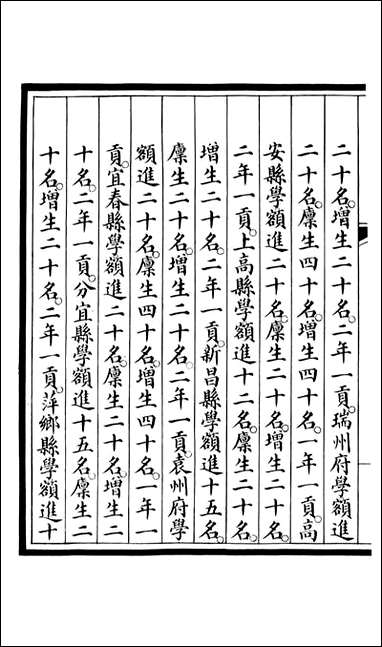 二十名。增生二十名。二年一貢。瑞州府學額進
二十名。廩生四十名。增生四十名。一年一貢。高
安縣學額進二十名。廩生二十名。增生二十名。
二年一貢。上高縣學額進十二名。廩生二十名。
增生二十名。二年一貢。新昌縣學額進十五名。
廩生二十名。增生二十名。二年一貢。袁州府學
額進二十名。廩生四十名。增生四十名。一年一
貢。宜春縣學額進二十名。廩生二十名。增生二
十名。二年一貢。分宜縣學額進十五名。廩生二
十名。增生二十名。二年一貢。萍鄉縣學額進十